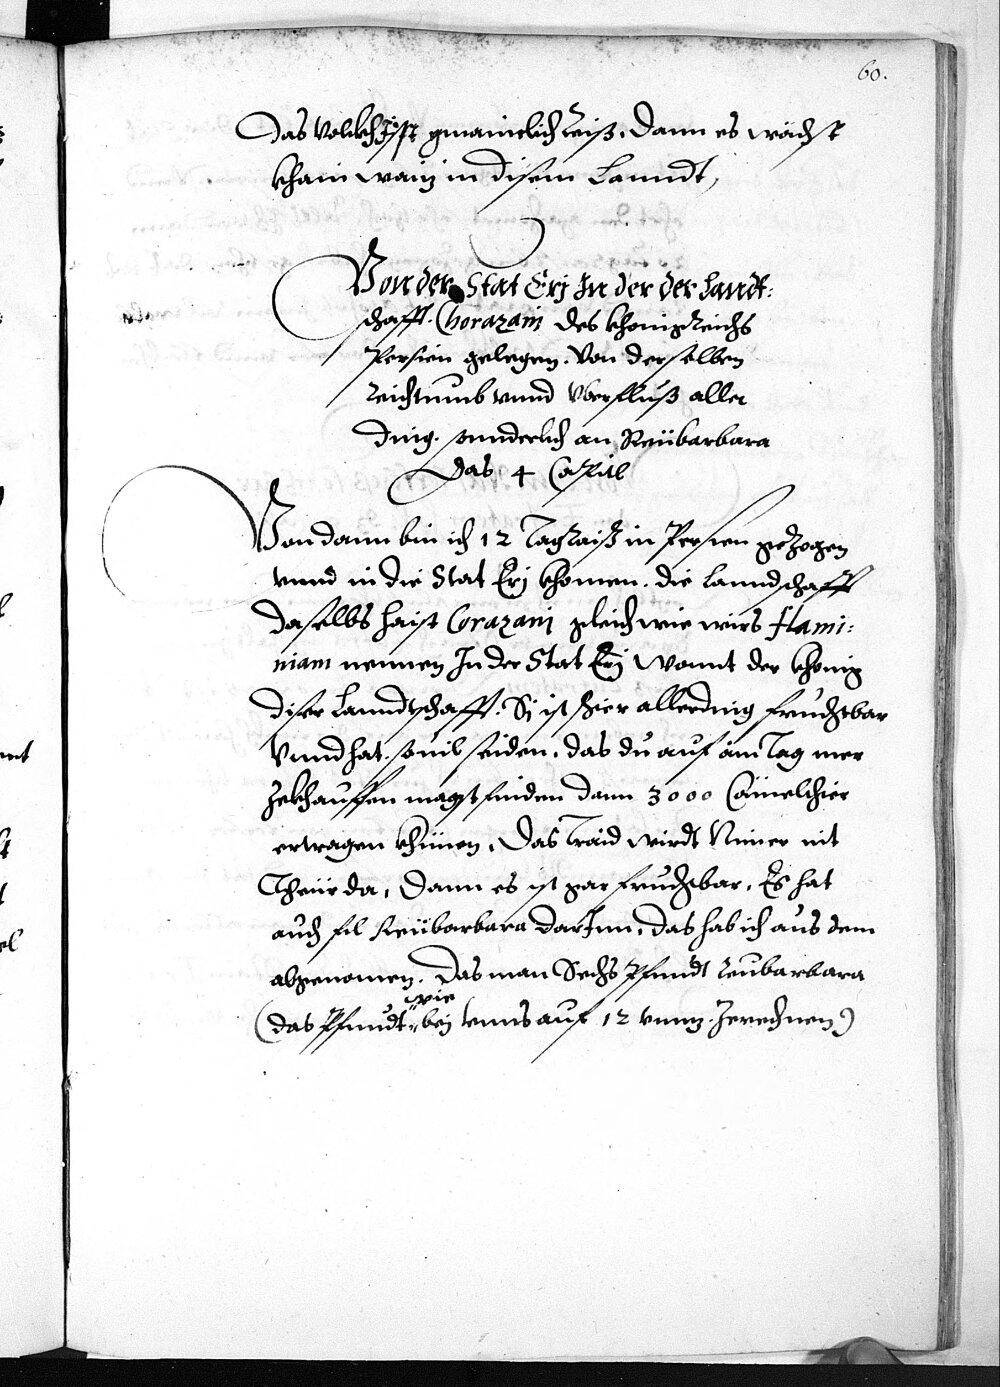 60.
Das volckh Isst gmainclich Reiß, Dann es wächst
khain waitz in disem Lanndt,
Von der Stat Erj In der der Landt-
schafft Chorazanj des khonigReichs
Persien gelegen. Von derselben
Reichtumb vnnd vberfluß aller
Ding. sonnderlich an Reübarbara
Das 4 Capitl
Von dann bin ich 12 TagRaiß in Persien gezogen
vnnd in die Stat Erj khomen. die Lanndschafft
daselbs haist Corazanj gleich wie wirs flami-
niam nennen In der Stat Erj wonnt der khonig
diser Lanndtschafft. Sj ist hier allerding fruchtbar
Vnnd hat souil seiden, das du auf ain Tag mer
zekhauffen magst finden dann 3000 Cämelthier
ertragen khünen, Das Traid wirdt Nimer nit
Theür da, Dann es ist gar fruchtbar, Es hat
auch fil Reübarbara darInn, das hab ich aus dem
abgenomen. Das man Sechs Pfundt Reubarbara
wie
(das Pfundt bej vnns auf 12 vnntz. Zerechnen)